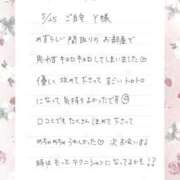 7/25 ご自宅 Y様
めずらしい間取りのお部屋で
思わずキョロキョロしてしまいました♡
優しく攻めて下さって すごいトロトロ
になって気持ちよかったです
口コミでもたくさんほめて下さって
めちゃめちゃうれしかった♡ 次お会いする
時はもっとテクニシャンになってるかも!?